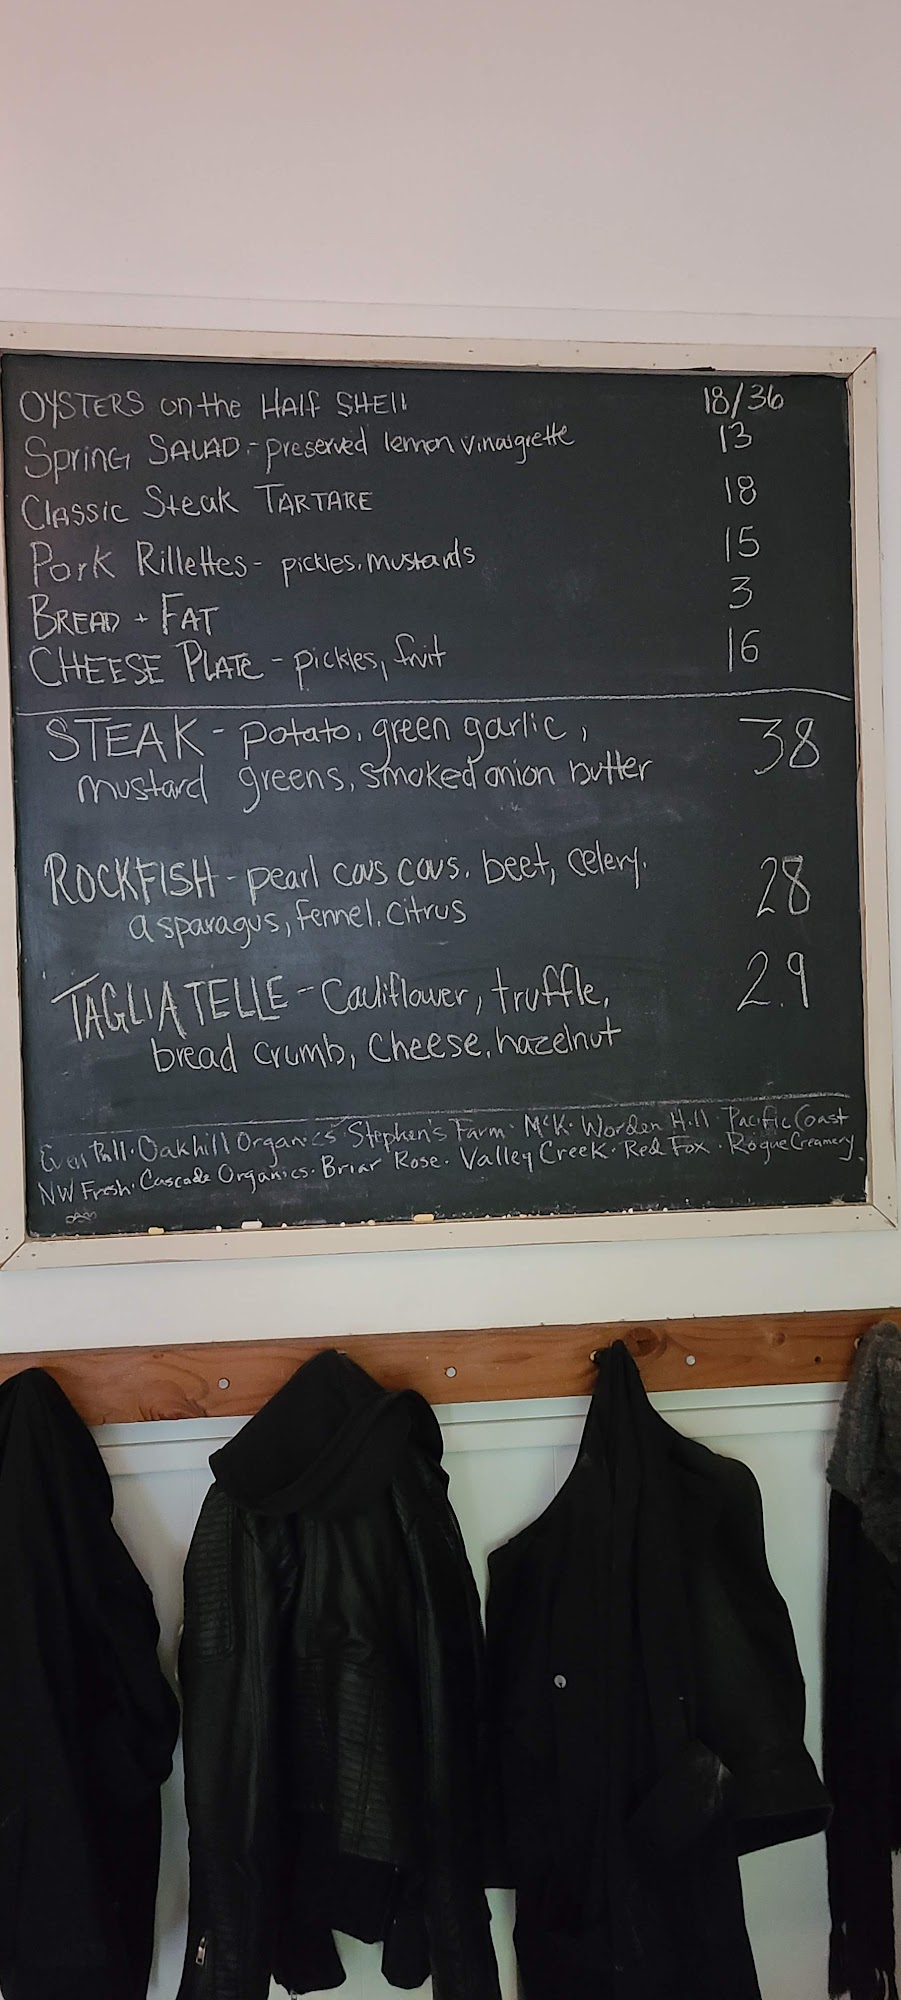 OYSTERS on the HAlf SHEll 18/36
SpriNG SALAD - preserved lemon vinaigrette 13
ClAssic Steak TARTARE 18
Pork Rillettes - pickles, mustards 15
BREAD + FAT 3
CHEESE PLATE - pickles, fruit 16
STEAK - potato, green garlic, 38
mustard greens, smoked onion butter
ROCKFISH - pearl cous cous, beet, celery, 28
asparagus, fennel, citrus
TAGLIATELLE - Cauliflower, truffle, 29
bread crumb, cheese, hazelnut
Even Pull · Oakhill Organics · Stephen's Farm · McK · Worden Hill · Pacific Coast
NW Fresh · Cascade Organics · Briar Rose · Valley Creek · Red Fox · Rogue Creamery